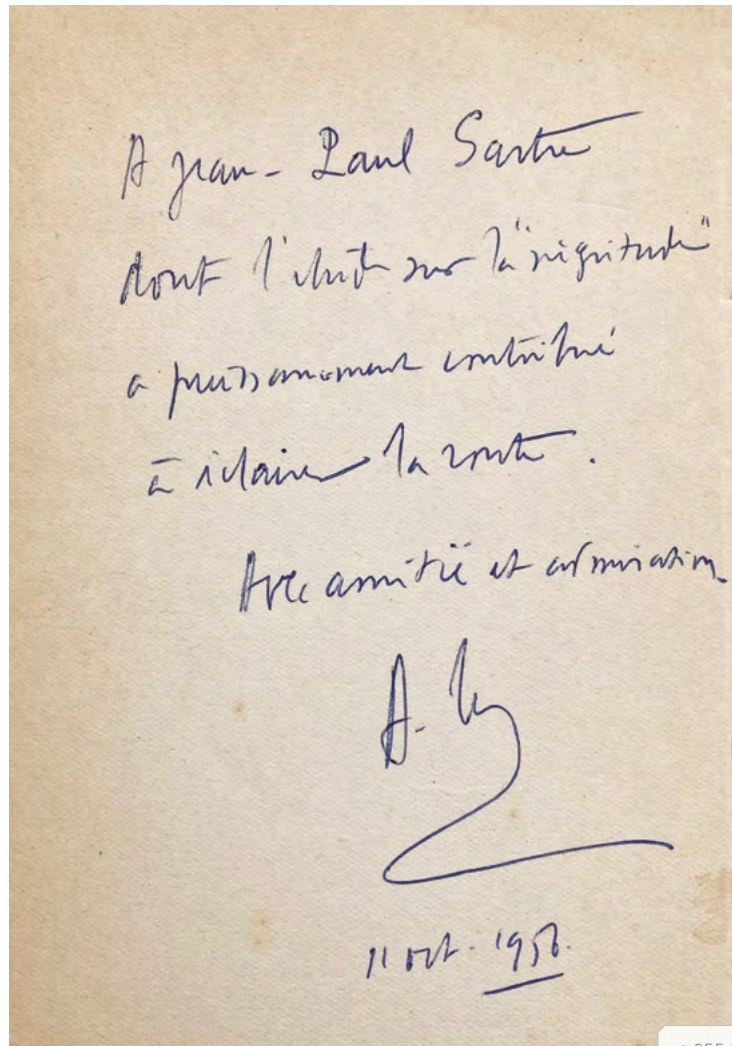 A Jean-Paul Sartre
dont l'étude sur la "négritude"
a puissamment contribué
à éclairer la route.
Avec amitié et admiration
A.
11 oct. 1956.